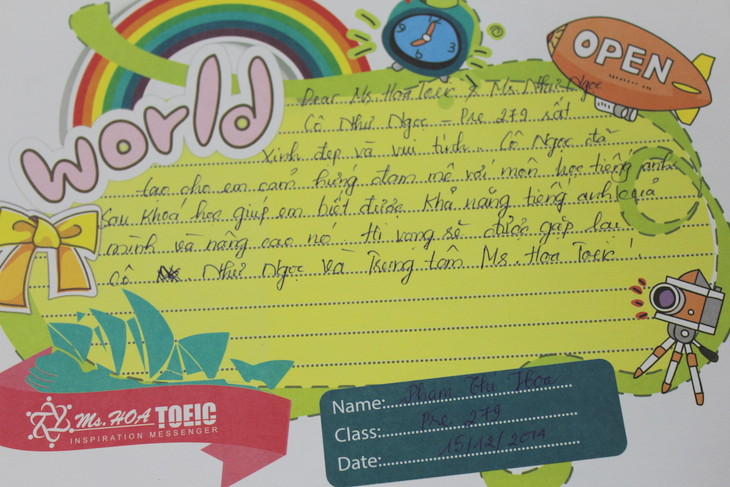 World
OPEN
Dear Ms. Hoa Toeic & Ms. Như Ngọc
Cô Như Ngọc - Pre 279 rất
xinh đẹp và vui tính. Cô Ngọc đã
tạo cho em cảm hứng đam mê với môn học tiếng anh.
Sau khoá học giúp em biết được khả năng tiếng anh của
mình và nâng cao nó. Hi vọng sẽ được gặp lại
Cô Như Ngọc và Trung tâm Ms. Hoa Toeic!
Ms. HOA TOEIC
INSPIRATION MESSENGER
Name: Phạm Thị Hoa
Class: Pre 279
Date: 15/12/2014